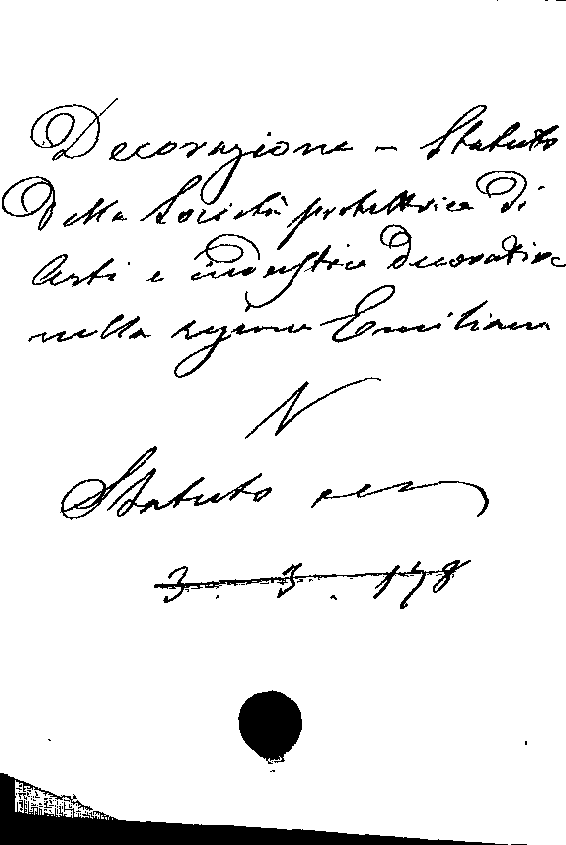 Decorazione - Statuto
Della Società protettrice di
Arti e industrie decorative
nella regione Emiliana
V
Statuto ecc
3. 3. 178